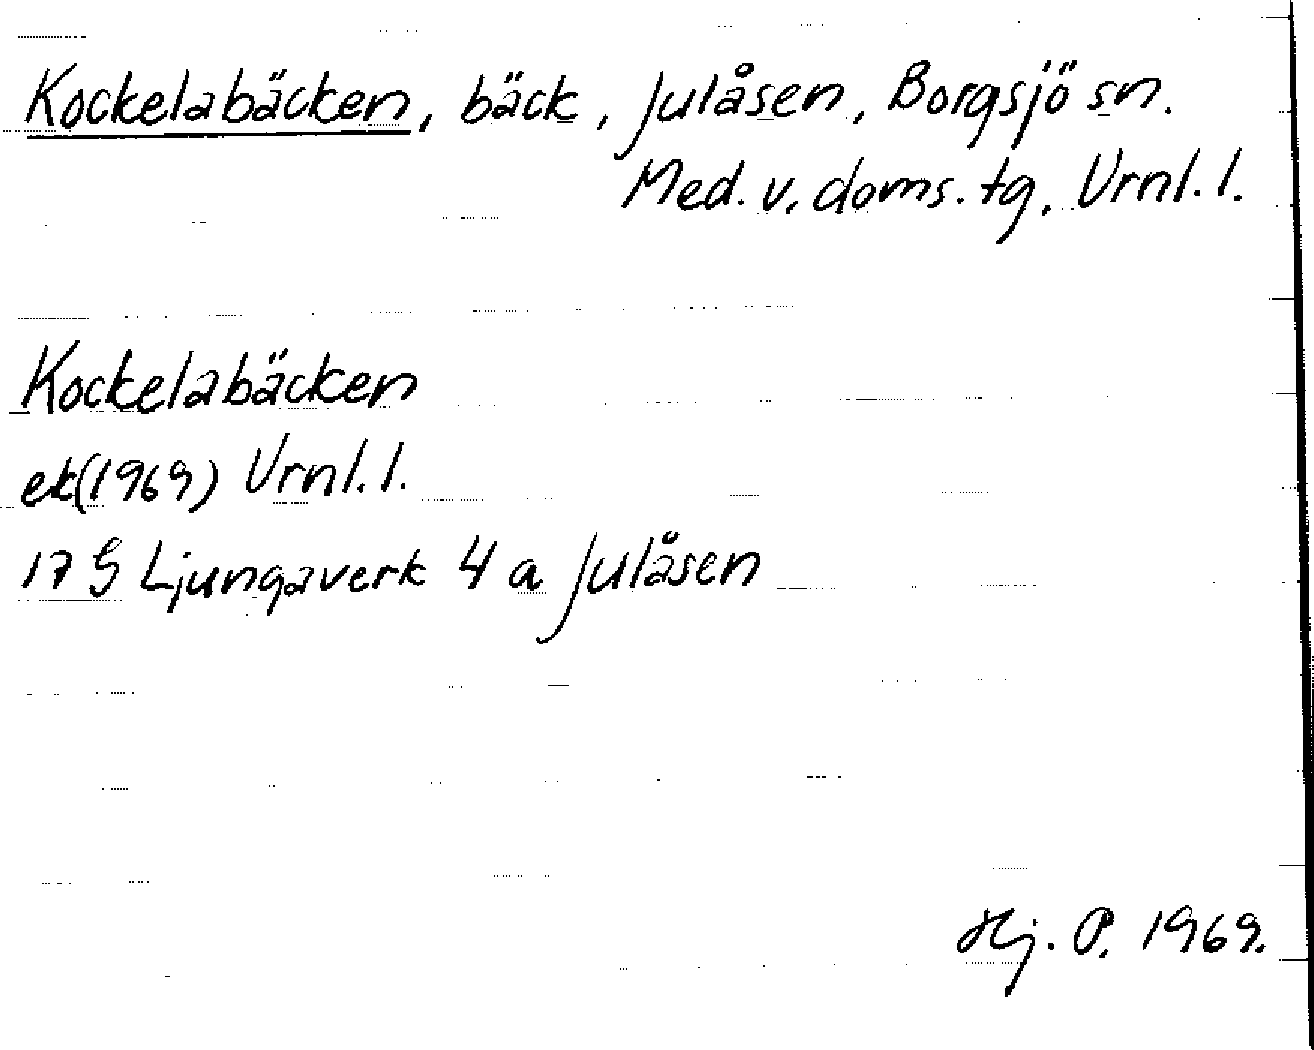 Kockelabäcken, bäck, Julåsen, Borgsjö sn.
Med. v. doms. tg. Vrnl. l.
Kockelabäcken
ek(1969) Vrnl. l.
17 G Ljungaverk 4 a Julåsen
Hj. P. 1969.